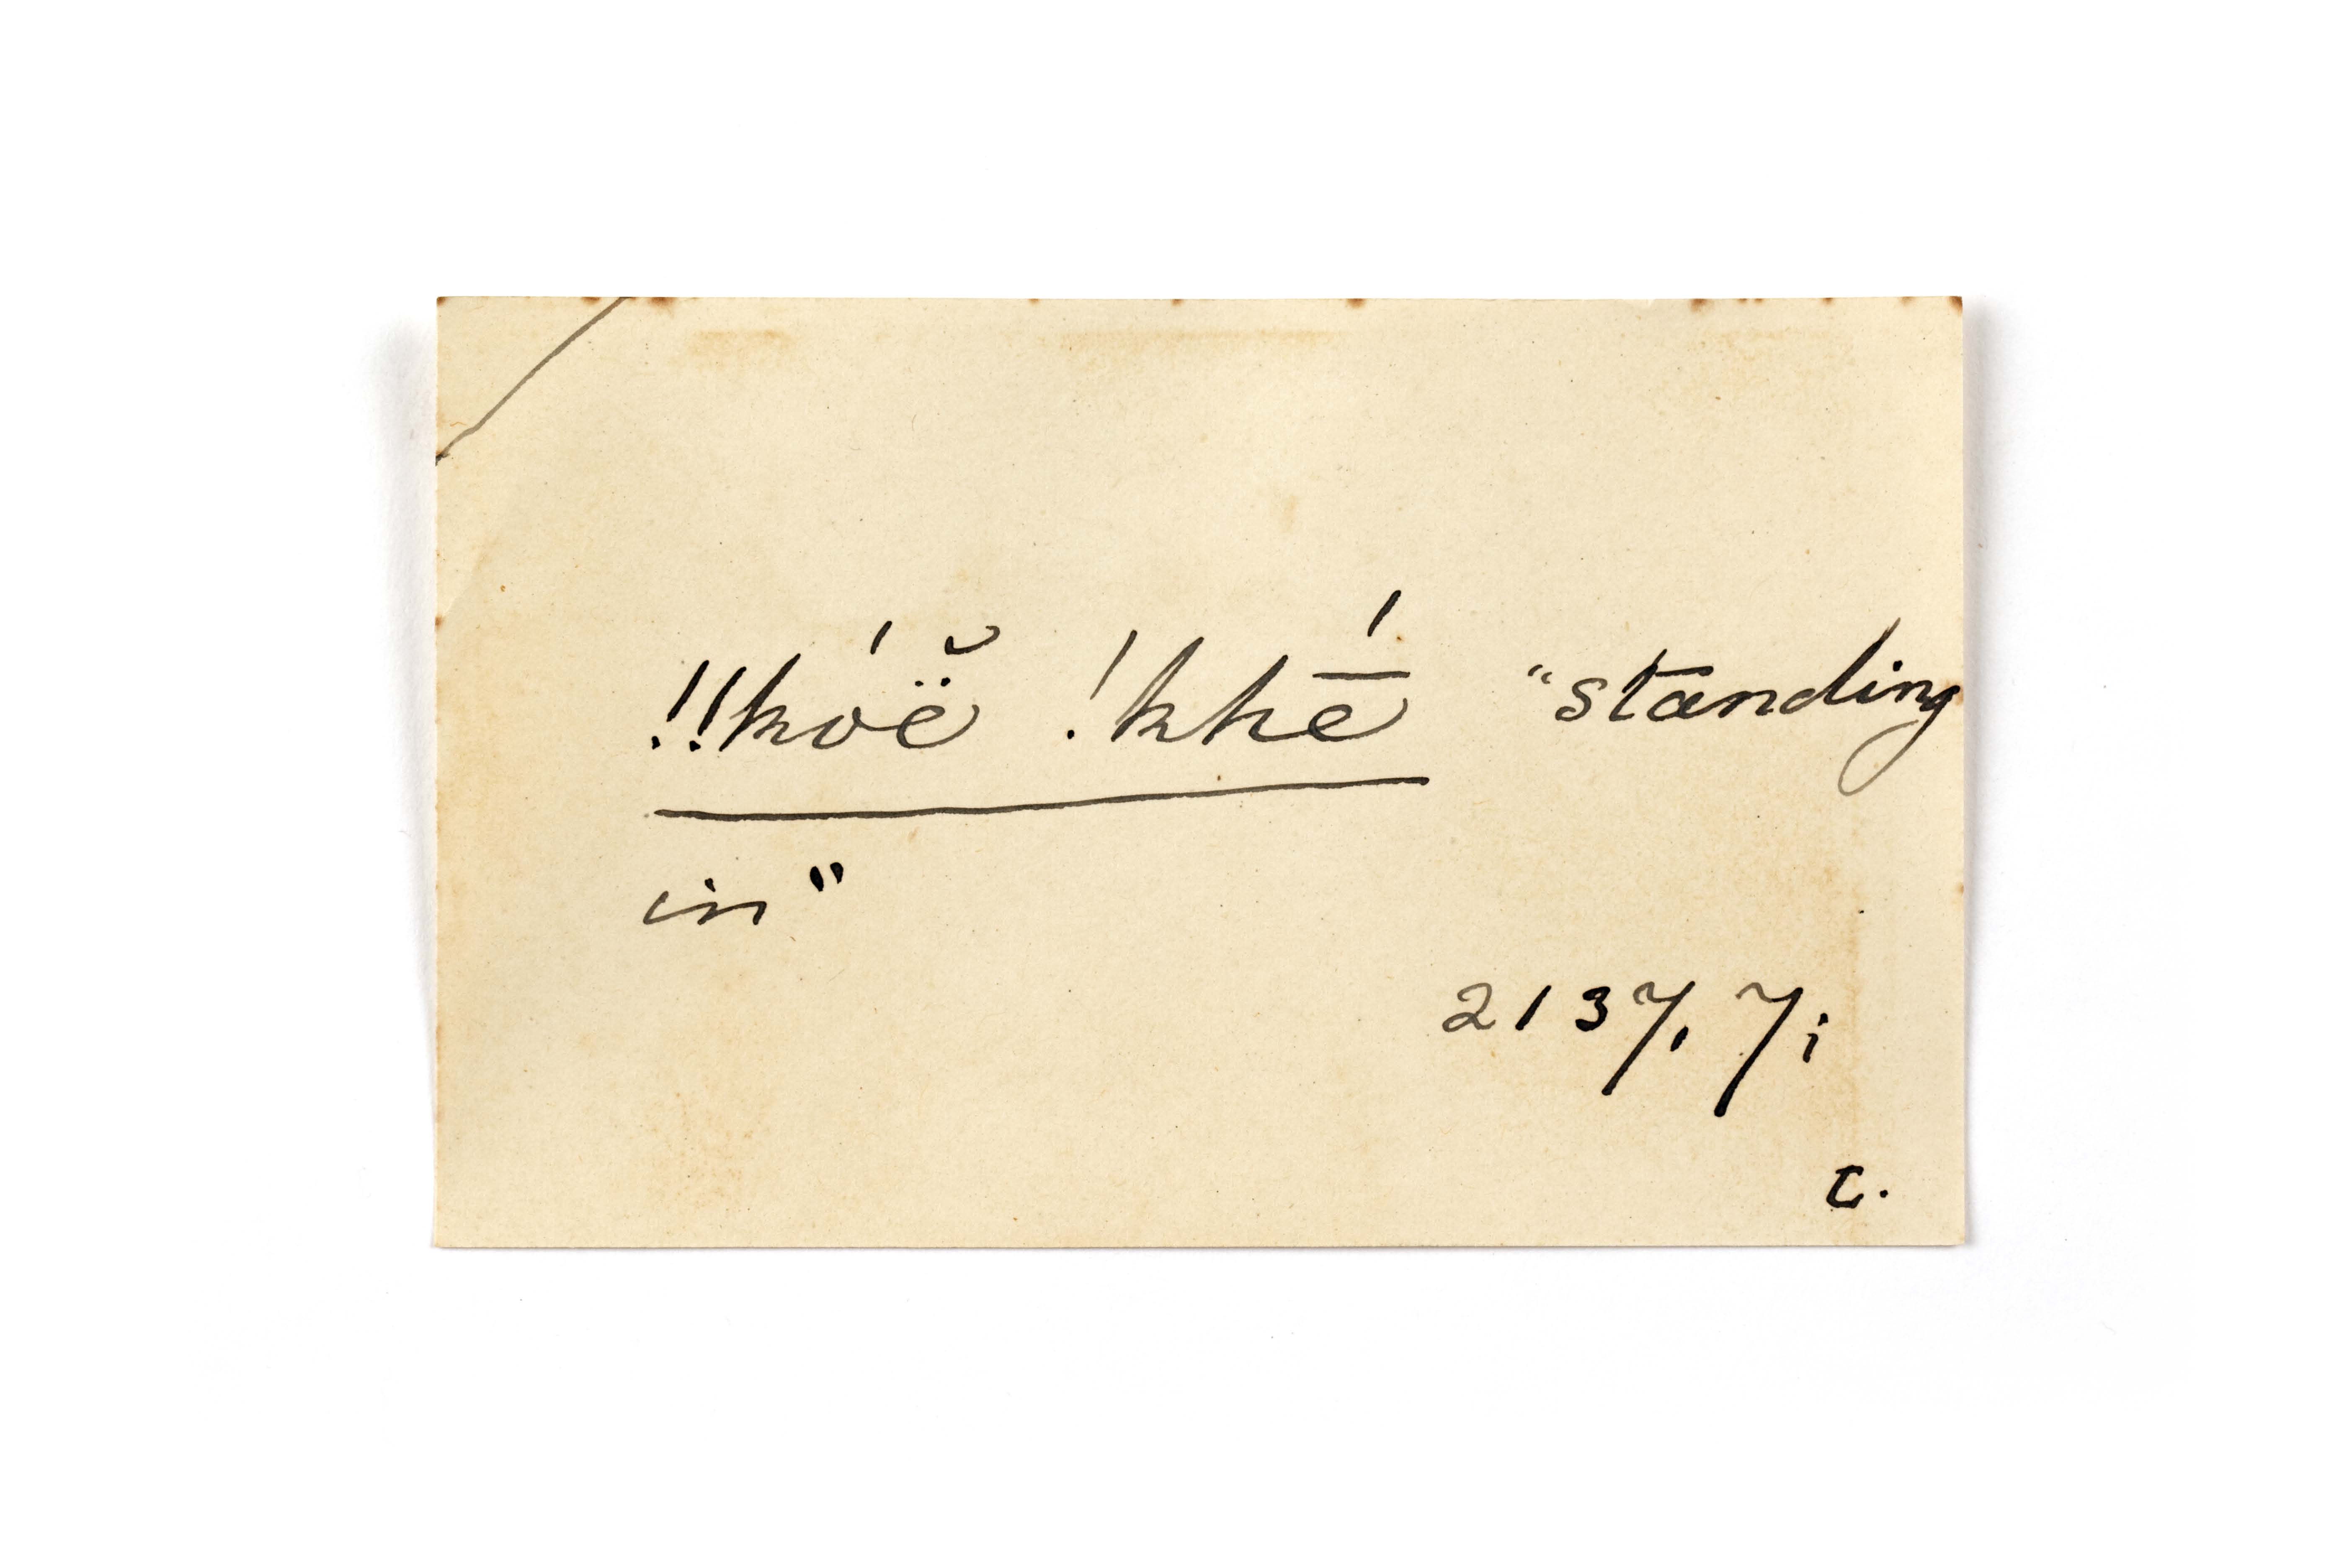 !!kóë̆ !khḗ "standing
in"
2137, 7;
C.